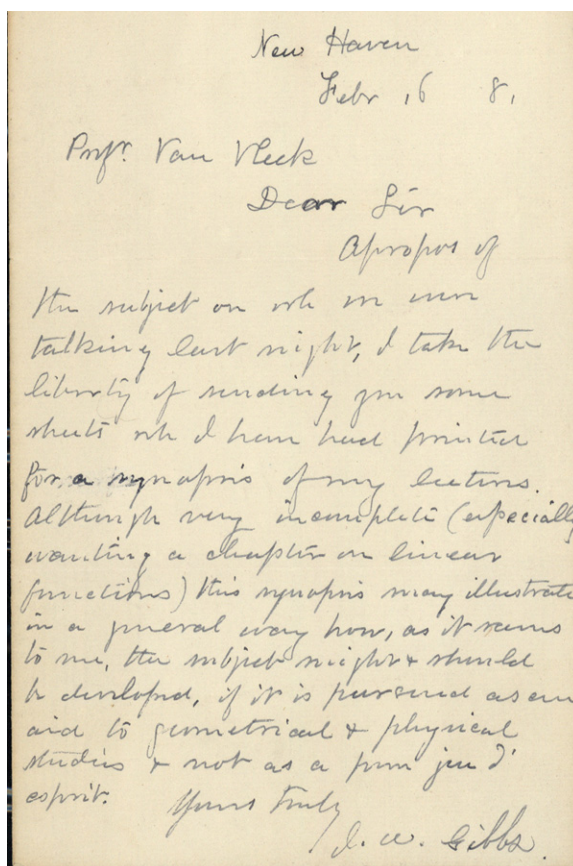 New Haven
Febr 16 81
Profr. Van Vleck
Dear Sir
Apropos of
the subject on wh we were
talking last night, I take the
liberty of sending you some
sheets wh I have had printed
for a synopsis of my lectures.
Although very incomplete (especially
wanting a chapter on linear
functions) this synopsis may illustrate
in a general way how, as it seems
to me, the subject might & should
be developed, if it is pursued as an
aid to geometrical & physical
studies & not as a pure jeu d'
esprit.
Yours truly
J. W. Gibbs.